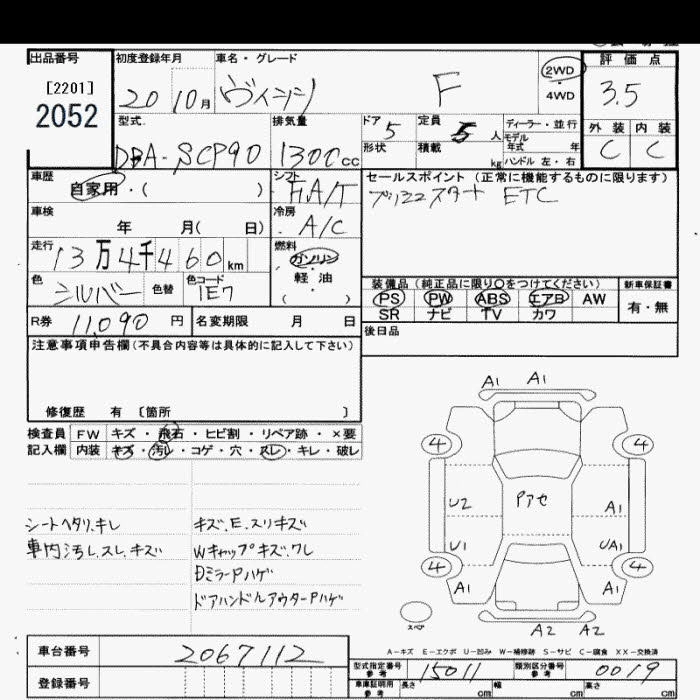 出品番号
[2201]
2052
初度登録年月
20 10月
車名・グレード
ヴィッツ F
2WD
4WD
評価点
3.5
外装 内装
C C
型式
DBA-SCP90
排気量
1300 cc
ドア 5
形状
定員 5 人
積載 kg
ディーラー・並行
モデル年式 年
ハンドル 左・右
車歴
自家用・( )
シフト
FA/T
セールスポイント (正常に機能するものに限ります)
プッシュスタート ETC
車検
年 月( 日)
冷房
A/C
走行
13万4千460km
燃料
ガソリン
軽油
( )
色
シルバー
色替
色コード
1E7
装備品 (純正品に限り〇をつけてください)
新車保証書
PS PW ABS エアB AW
SR ナビ TV カワ
有・無
R券 11,090 円
名変期限 月 日
後日品
注意事項申告欄(不具合内容等は具体的に記入して下さい)
修復歴 有 〔箇所 〕
検査員 FW キズ・飛石・ヒビ割・リペア跡・×要
記入欄 内装 キズ・汚レ・コゲ・穴・スレ・キレ・破レ
シートヘタリ、キレ
車内汚レ、スレ、キズ
キズ、E、スリキズ
Wキャップキズ、ワレ
DミラーPハゲ
ドアハンドルアウターPハゲ
A1 A1
4 4
U2 Pアセ A1
U1 UA1
4 4
A1 A1
スペア
A2 A2
A-キズ E-エクボ U-凹み W-補修跡 S-サビ C-腐食 XX-交換済
車台番号 2067112
登録番号
型式指定番号 参考 15011
類別区分番号 参考 0019
車庫証明用 参考 長さ cm 幅 cm 高さ cm